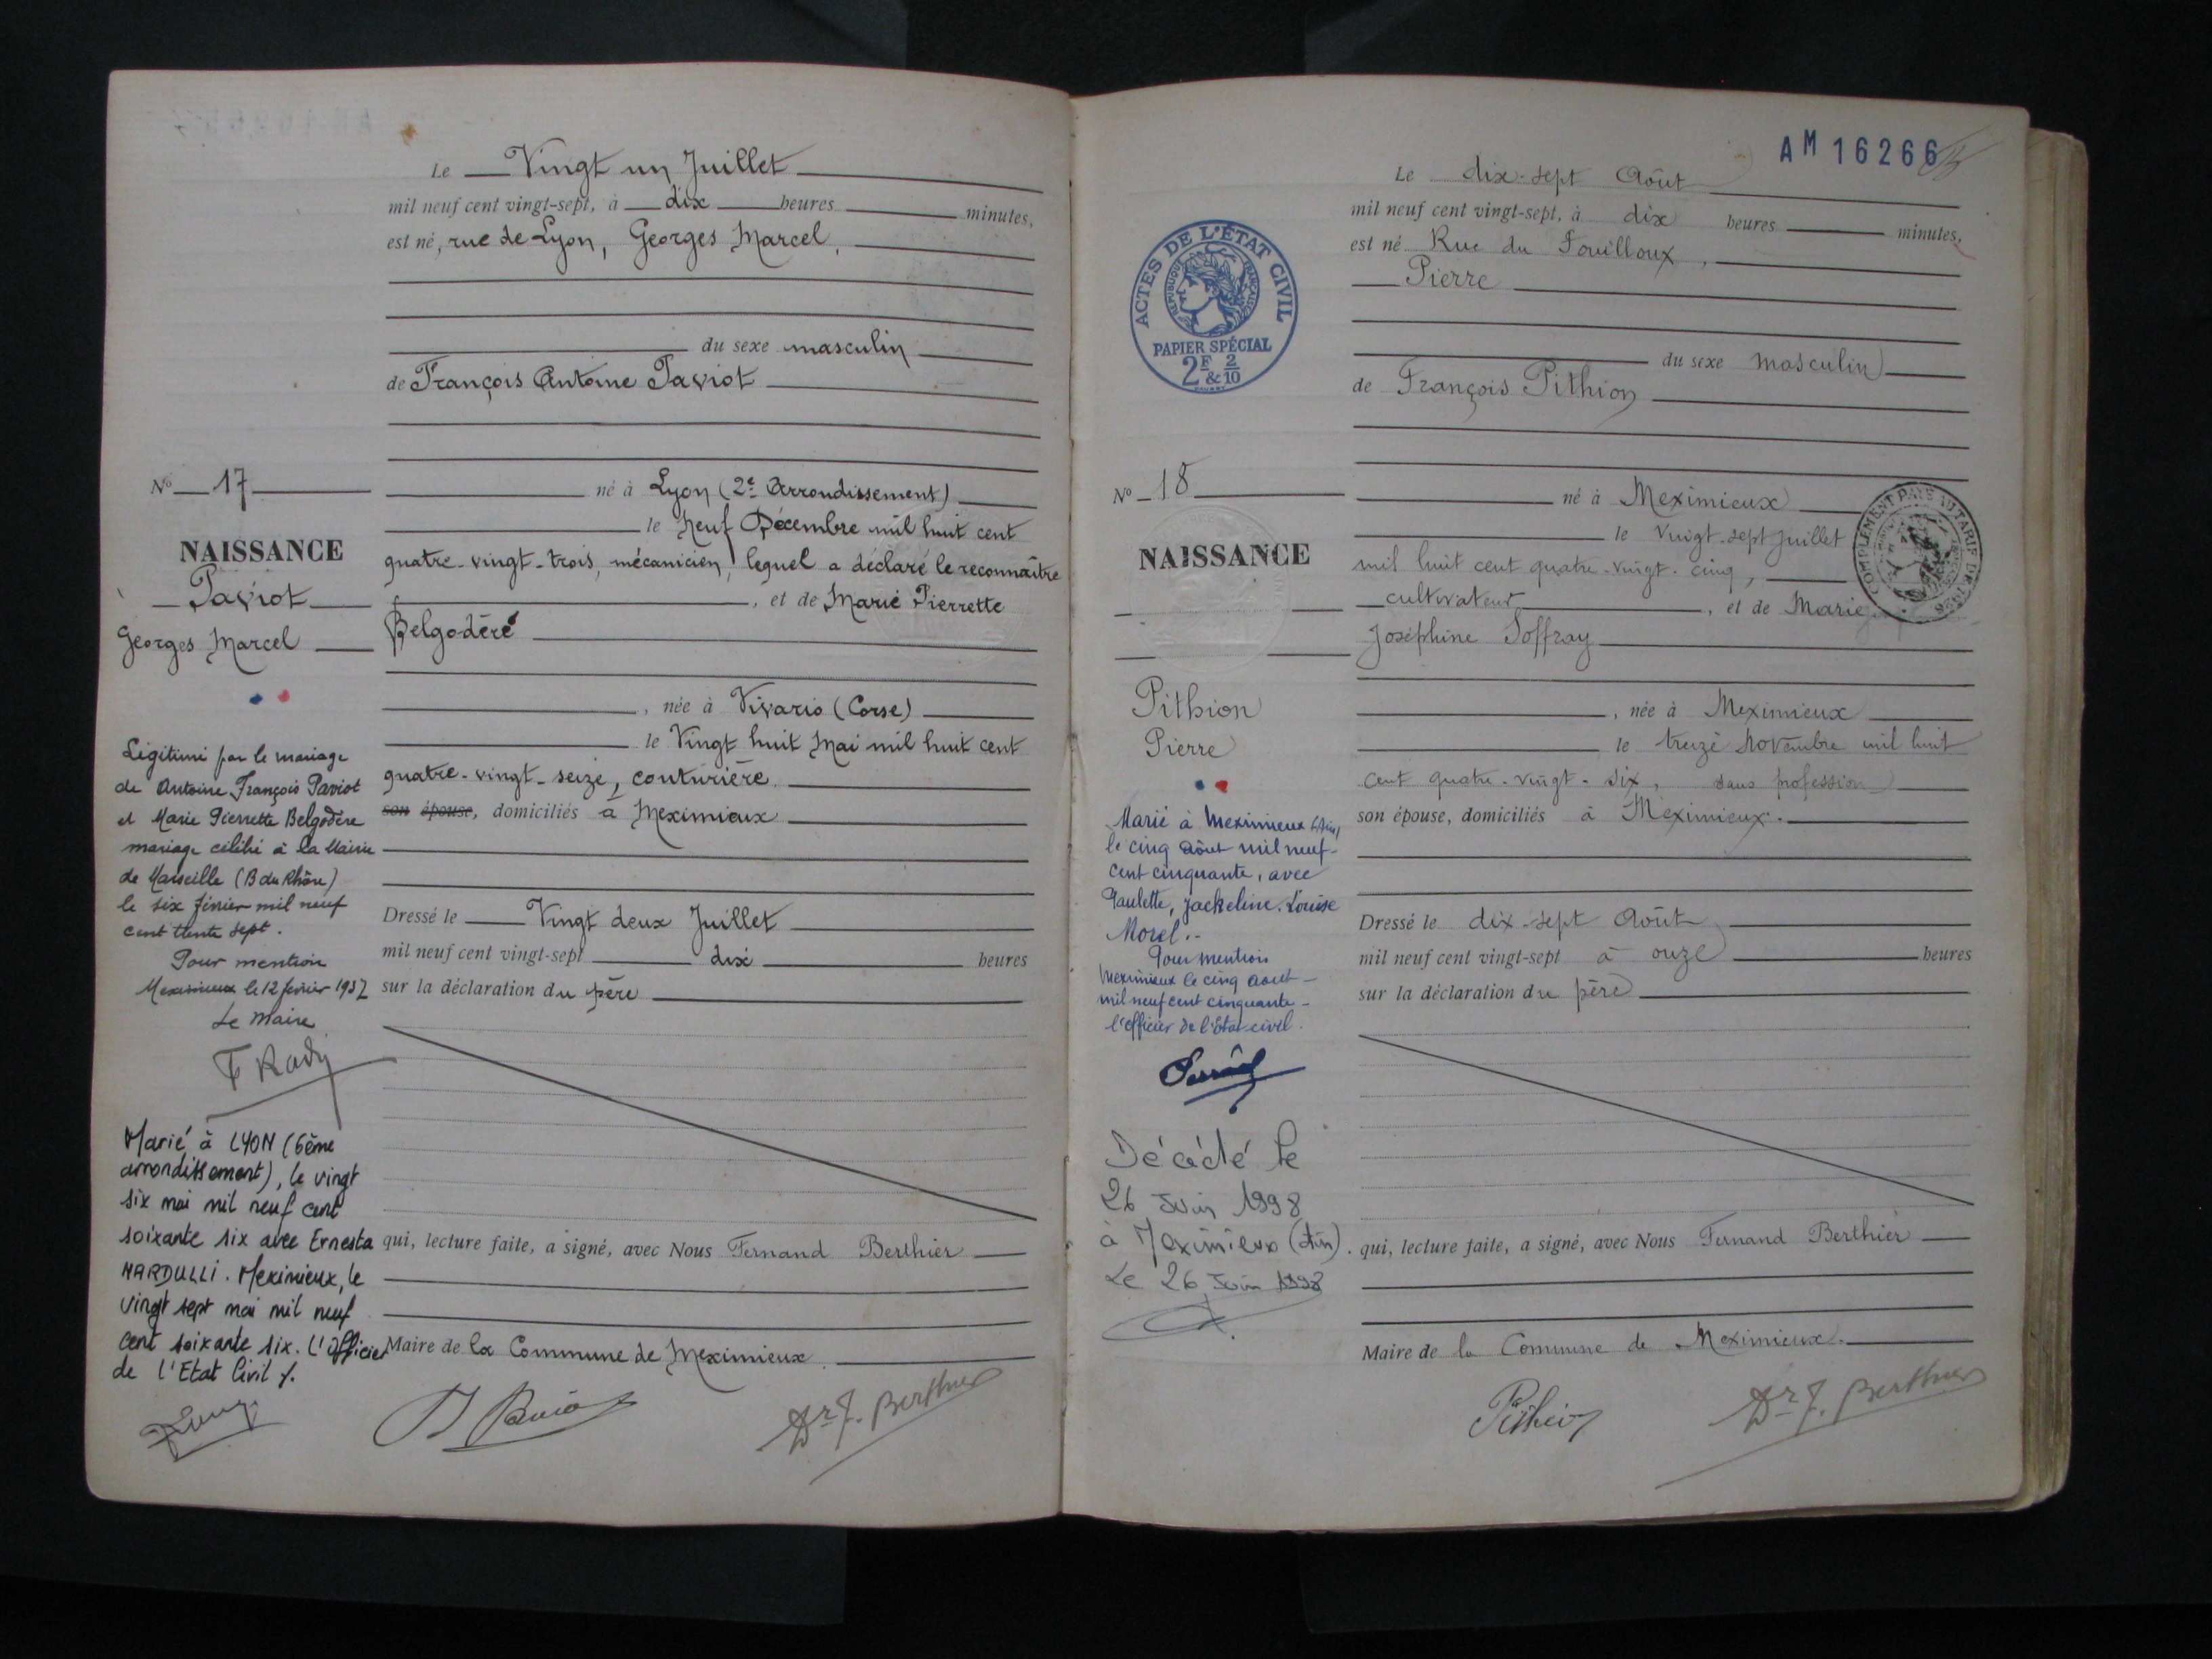 Le Vingt un Juillet
mil neuf cent vingt-sept, à dix heures minutes,
est né, rue de Lyon, Georges Marcel,
du sexe masculin
de François Antoine Paviot
né à Lyon (2e Arrondissement)
le neuf Décembre mil huit cent
quatre-vingt-trois, mécanicien, lequel a déclaré le reconnaître
, et de Marie Pierrette
Belgodère
, née à Vivario (Corse)
le Vingt huit Mai mil huit cent
quatre-vingt-seize, couturière.
son épouse, domiciliés à Meximieux
Dressé le Vingt deux Juillet
mil neuf cent vingt-sept dix heures
sur la déclaration du père
qui, lecture faite, a signé, avec Nous Fernand Berthier
Maire de la Commune de Meximieux.
Dr F. Berthier
No 17
NAISSANCE
Paviot
Georges Marcel
Légitimé par le mariage
de Antoine François Paviot
et Marie Pierrette Belgodère
mariage célébré à la Mairie
de Marseille (B du Rhône)
le six février mil neuf
cent trente sept.
Pour mention
Meximieux le 12 février 1937
Le Maire
Marié à LYON (6ème
arrondissement), le vingt
six mai mil neuf cent
soixante six avec Ernesta
NARDULLI. Meximieux, le
vingt sept mai mil neuf
cent soixante six. L'Officier
de l'Etat Civil
AM 16266
Le dix-sept Août
mil neuf cent vingt-sept, à dix heures minutes,
est né Rue du Fouilloux,
Pierre
du sexe masculin
de François Pithion
né à Meximieux
le vingt-sept Juillet
mil huit cent quatre-vingt-cinq,
cultivateur, et de Marie
Joséphine Joffray
, née à Meximieux
le treize Novembre mil huit
cent quatre-vingt-six, sans profession
son épouse, domiciliés à Meximieux.
Dressé le dix-sept Août
mil neuf cent vingt-sept à onze heures
sur la déclaration du père
qui, lecture faite, a signé, avec Nous Fernand Berthier
Maire de la Commune de Meximieux.
Pithion
Dr F. Berthier
ACTES DE L'ÉTAT CIVIL
RÉPUBLIQUE FRANÇAISE
PAPIER SPÉCIAL
2F & 2/10
COMPLÉMENT PAYÉ AU TARIF DE 1926
No 18
NAISSANCE
Pithion
Pierre
Marié à Meximieux (Ain)
le cinq août mil neuf-
cent cinquante, avec
Paulette, Jackeline, Louise
Morel.-
Pour mention
Meximieux le cinq août-
mil neuf cent cinquante-
l'officier de l'état-civil.
Décédé le
26 Juin 1998
à Meximieux (Ain).
Le 26 Juin 1998